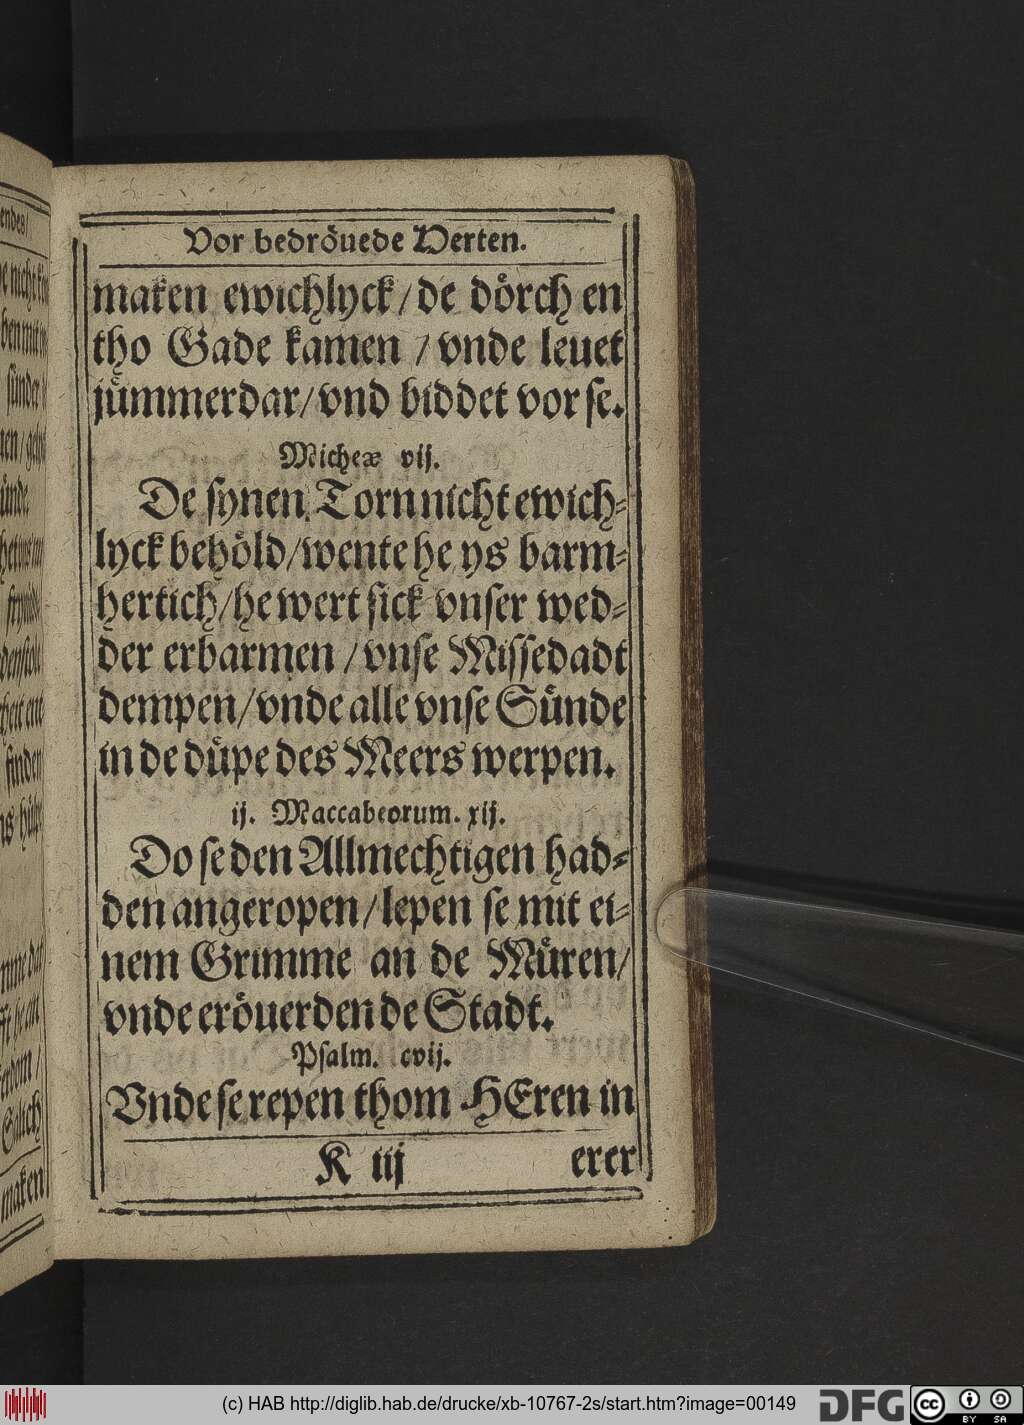 Vor bedröuede Herten.
maken ewichlyck / de dörch en
tho Gade kamen / vnde leuet
jümmerdar / vnd biddet vor se.
Micheæ vij.
De synen Torn nicht ewich-
lyck behöld / wente he ys barm-
hertich / he wert sick vnser wed-
der erbarmen / vnse Missedadt
dempen / vnde alle vnse Sünde
in de düpe des Meers werpen.
ij. Maccabeorum. xij.
Do se den Allmechtigen had-
den angeropen / lepen se mit ei-
nem Grimme an de Müren /
vnde eröuerden de Stadt.
Psalm. cvij.
Vnde se repen thom HEren in
K iij
erer
maken
(c) HAB http://diglib.hab.de/drucke/xb-10767-2s/start.htm?image=00149
DFG
cc
BY SA